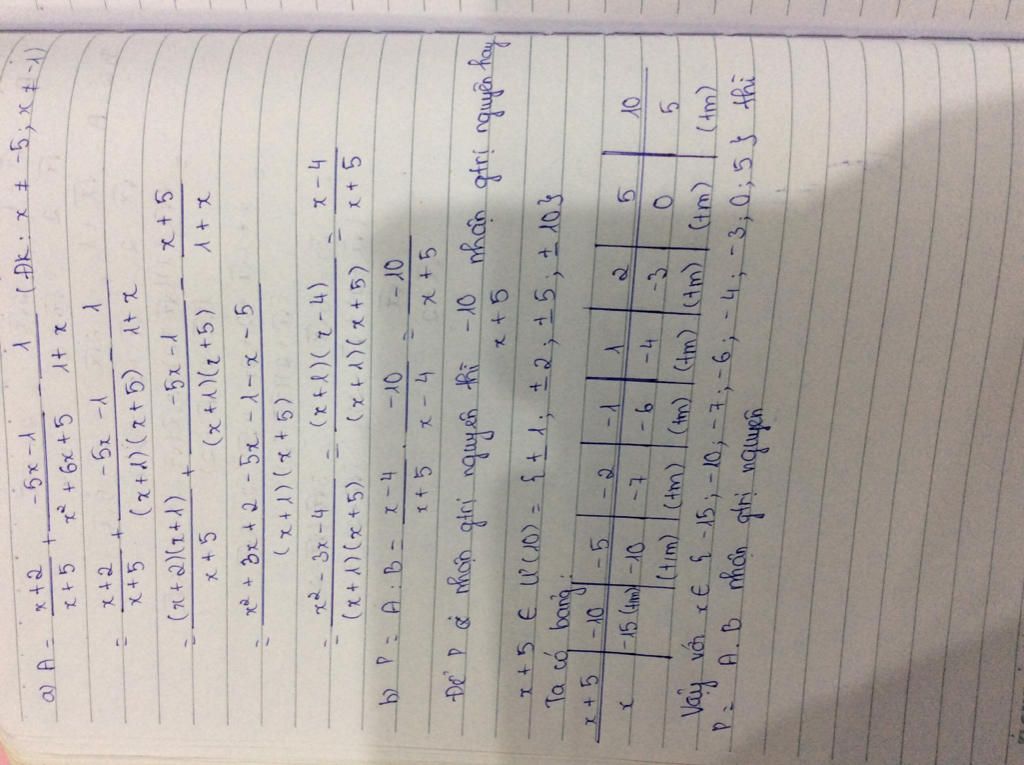 a) A = (x+2)/(x+5) + (-5x-1)/(x²+6x+5) - 1/(1+x) (ĐK: x ≠ -5; x ≠ -1)
= (x+2)/(x+5) + (-5x-1)/((x+1)(x+5)) - 1/(1+x)
= ((x+2)(x+1))/(x+5) + (-5x-1)/((x+1)(x+5)) - (x+5)/(1+x)
= (x²+3x+2-5x-1-x-5)/((x+1)(x+5))
= (x²-3x-4)/((x+1)(x+5)) = ((x+1)(x-4))/((x+1)(x+5)) = (x-4)/(x+5)
b) P = A:B = (x-4)/(x+5) · (-10)/(x-4) = (-10)/(x+5)
Để P nhận gtrị nguyên thì -10/(x+5) nhận gtrị nguyên hay
x+5 ∈ Ư(10) = {±1; ±2; ±5; ±10}
Ta có bảng:
x+5 | -10 | -5 | -2 | -1 | 1 | 2 | 5 | 10
x | -15 (tm) | -10 | -7 | -6 | -4 | -3 | 0 | 5
(tm) | (tm) | (tm) | (tm) | (tm) | (tm) | (tm)
Vậy với x ∈ {-15; -10; -7; -6; -4; -3; 0; 5} thì
P = A.B nhận gtrị nguyên